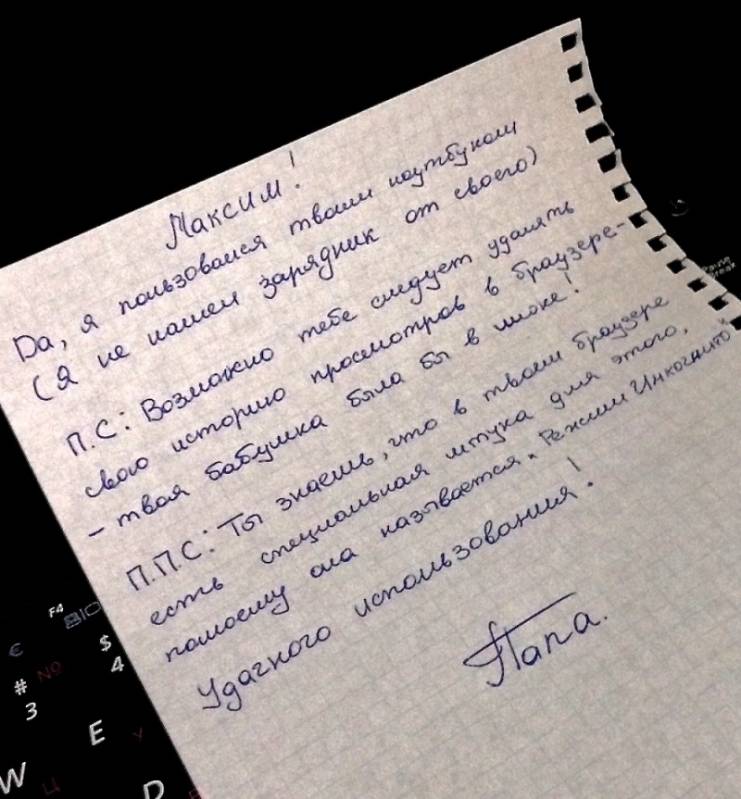 Максим!
Да, я пользовался твоим ноутбуком
(я не нашел зарядник от своего)
П.С: Возможно тебе следует удалять
свою историю просмотров в браузере-
- твоя бабушка была бы в шоке!
П.П.С: Ты знаешь, что в твоем браузере
есть специальная штука для этого,
помоему она называется "Режим Инкогнито"
Удачного использования!
Папа.
F4
BIOS
€
$
4
NO
#
3
E
У
W
Ц
D